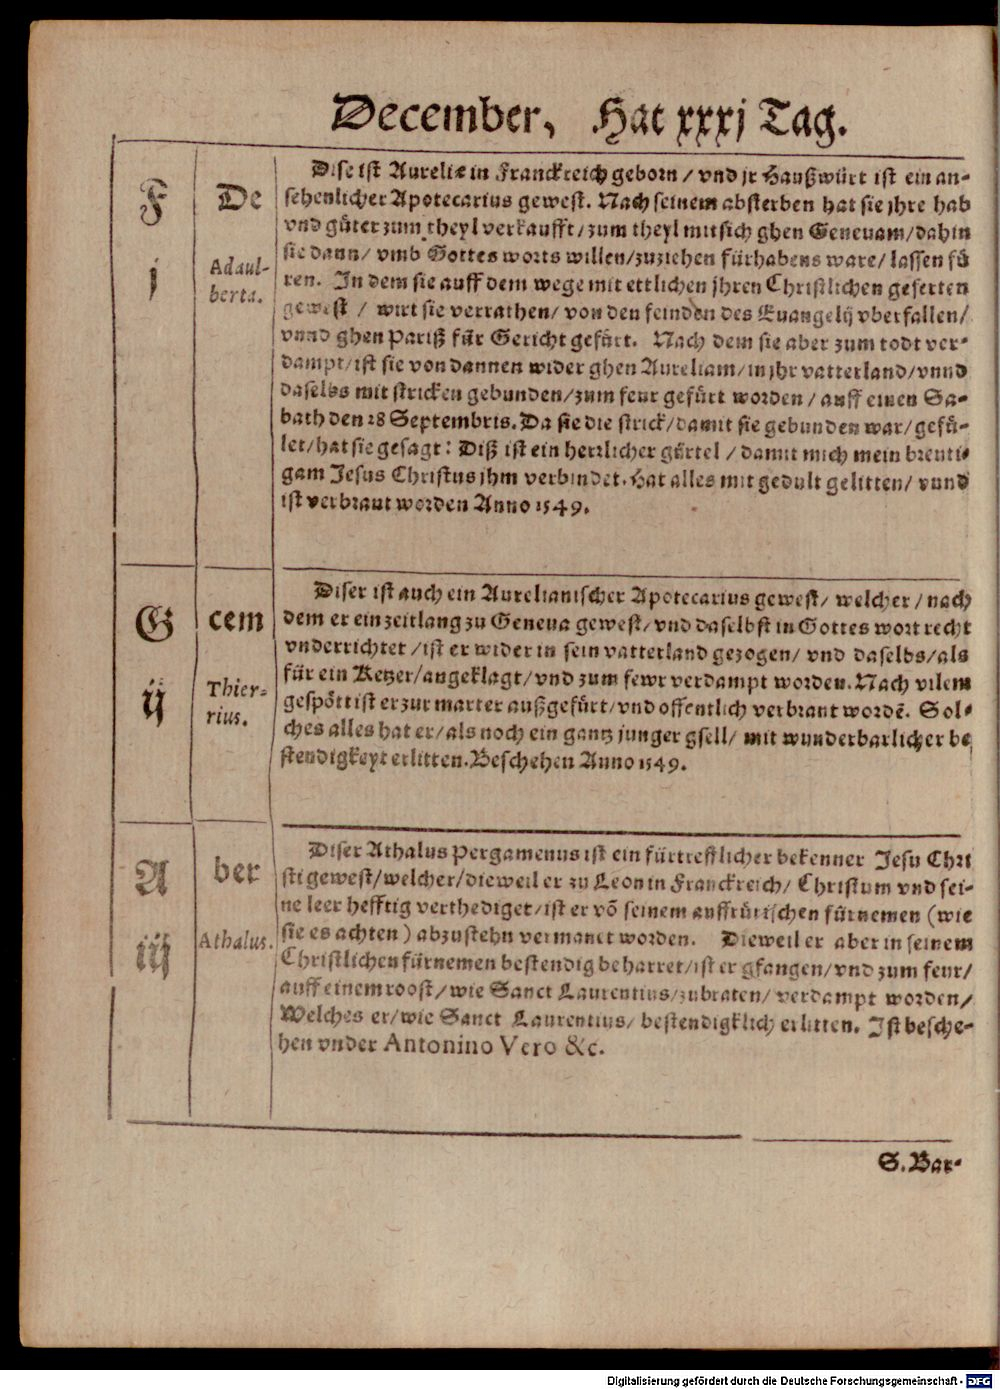 December, Hat xxxj Tag.
F
j
De
Adaul-
berta.
Dise ist Aureliæ in Franckreich geborn / vnd jr Haußwürt ist ein an-
sehenlicher Apotecarius gewest. Nach seinem absterben hat sie jhre hab
vnd güter zum theyl verkaufft / zum theyl mit sich ghen Geneuam / dahin
sie dann / vmb Gottes worts willen / zuziehen fürhabens ware / lassen fü
ren. In dem sie auff dem wege mit ettlichen jhren Christlichen geferten
gewest / wirt sie verrathen / von den feinden des Euangelij vberfallen /
vnnd ghen Pariß für Gericht gefürt. Nach dem sie aber zum todt ver-
dampt / ist sie von dannen wider ghen Aureliam / in jhr vatterland / vnnd
daselbs mit stricken gebunden / zum feur gefürt worden / auff einen Sa-
bath den 28 Septembris. Da sie die strick / damit sie gebunden war / gefü-
let / hat sie gesagt: Diß ist ein herrlicher gürtel / damit mich mein breuti-
gam Jesus Christus jhm verbindet. Hat alles mit gedult gelitten / vnnd
ist verbrant worden Anno 1549.
G
ij
cem
Thier-
rius.
Diser ist auch ein Aurelianischer Apotecarius gewest / welcher / nach
dem er ein zeitlang zu Geneua gewest / vnd daselbst in Gottes wort recht
vnderrichtet / ist er wider in sein vatterland gezogen / vnd daselbs / als
für ein Ketzer / angeklagt / vnd zum fewr verdampt worden. Nach vilem
gespött ist er zur marter außgefürt / vnd offentlich verbrant wordē. Sol-
ches alles hat er / als noch ein gantz junger gsell / mit wunderbarlicher be
stendigkeyt erlitten. Beschehen Anno 1549.
A
iij
ber
Athalus.
Diser Athalus Pergamenus ist ein fürtrefflicher bekenner Jesu Chri
sti gewest / welcher / dieweil er zu Leon in Franckreich / Christum vnd sei-
ne leer hefftig verthediget / ist er võ seinem auffrürischen fürnemen (wie
sie es achten) abzustehn vermanet worden. Dieweil er aber in seinem
Christlichen fürnemen bestendig beharret / ist er gfangen / vnd zum feur /
auff einem roost / wie Sanct Laurentius / zubraten / verdampt worden /
Welches er / wie Sanct Laurentius / bestendigklich erlitten. Ist besche-
hen vnder Antonino Vero &c.
S. Bar-
Digitalisierung gefördert durch die Deutsche Forschungsgemeinschaft - DFG